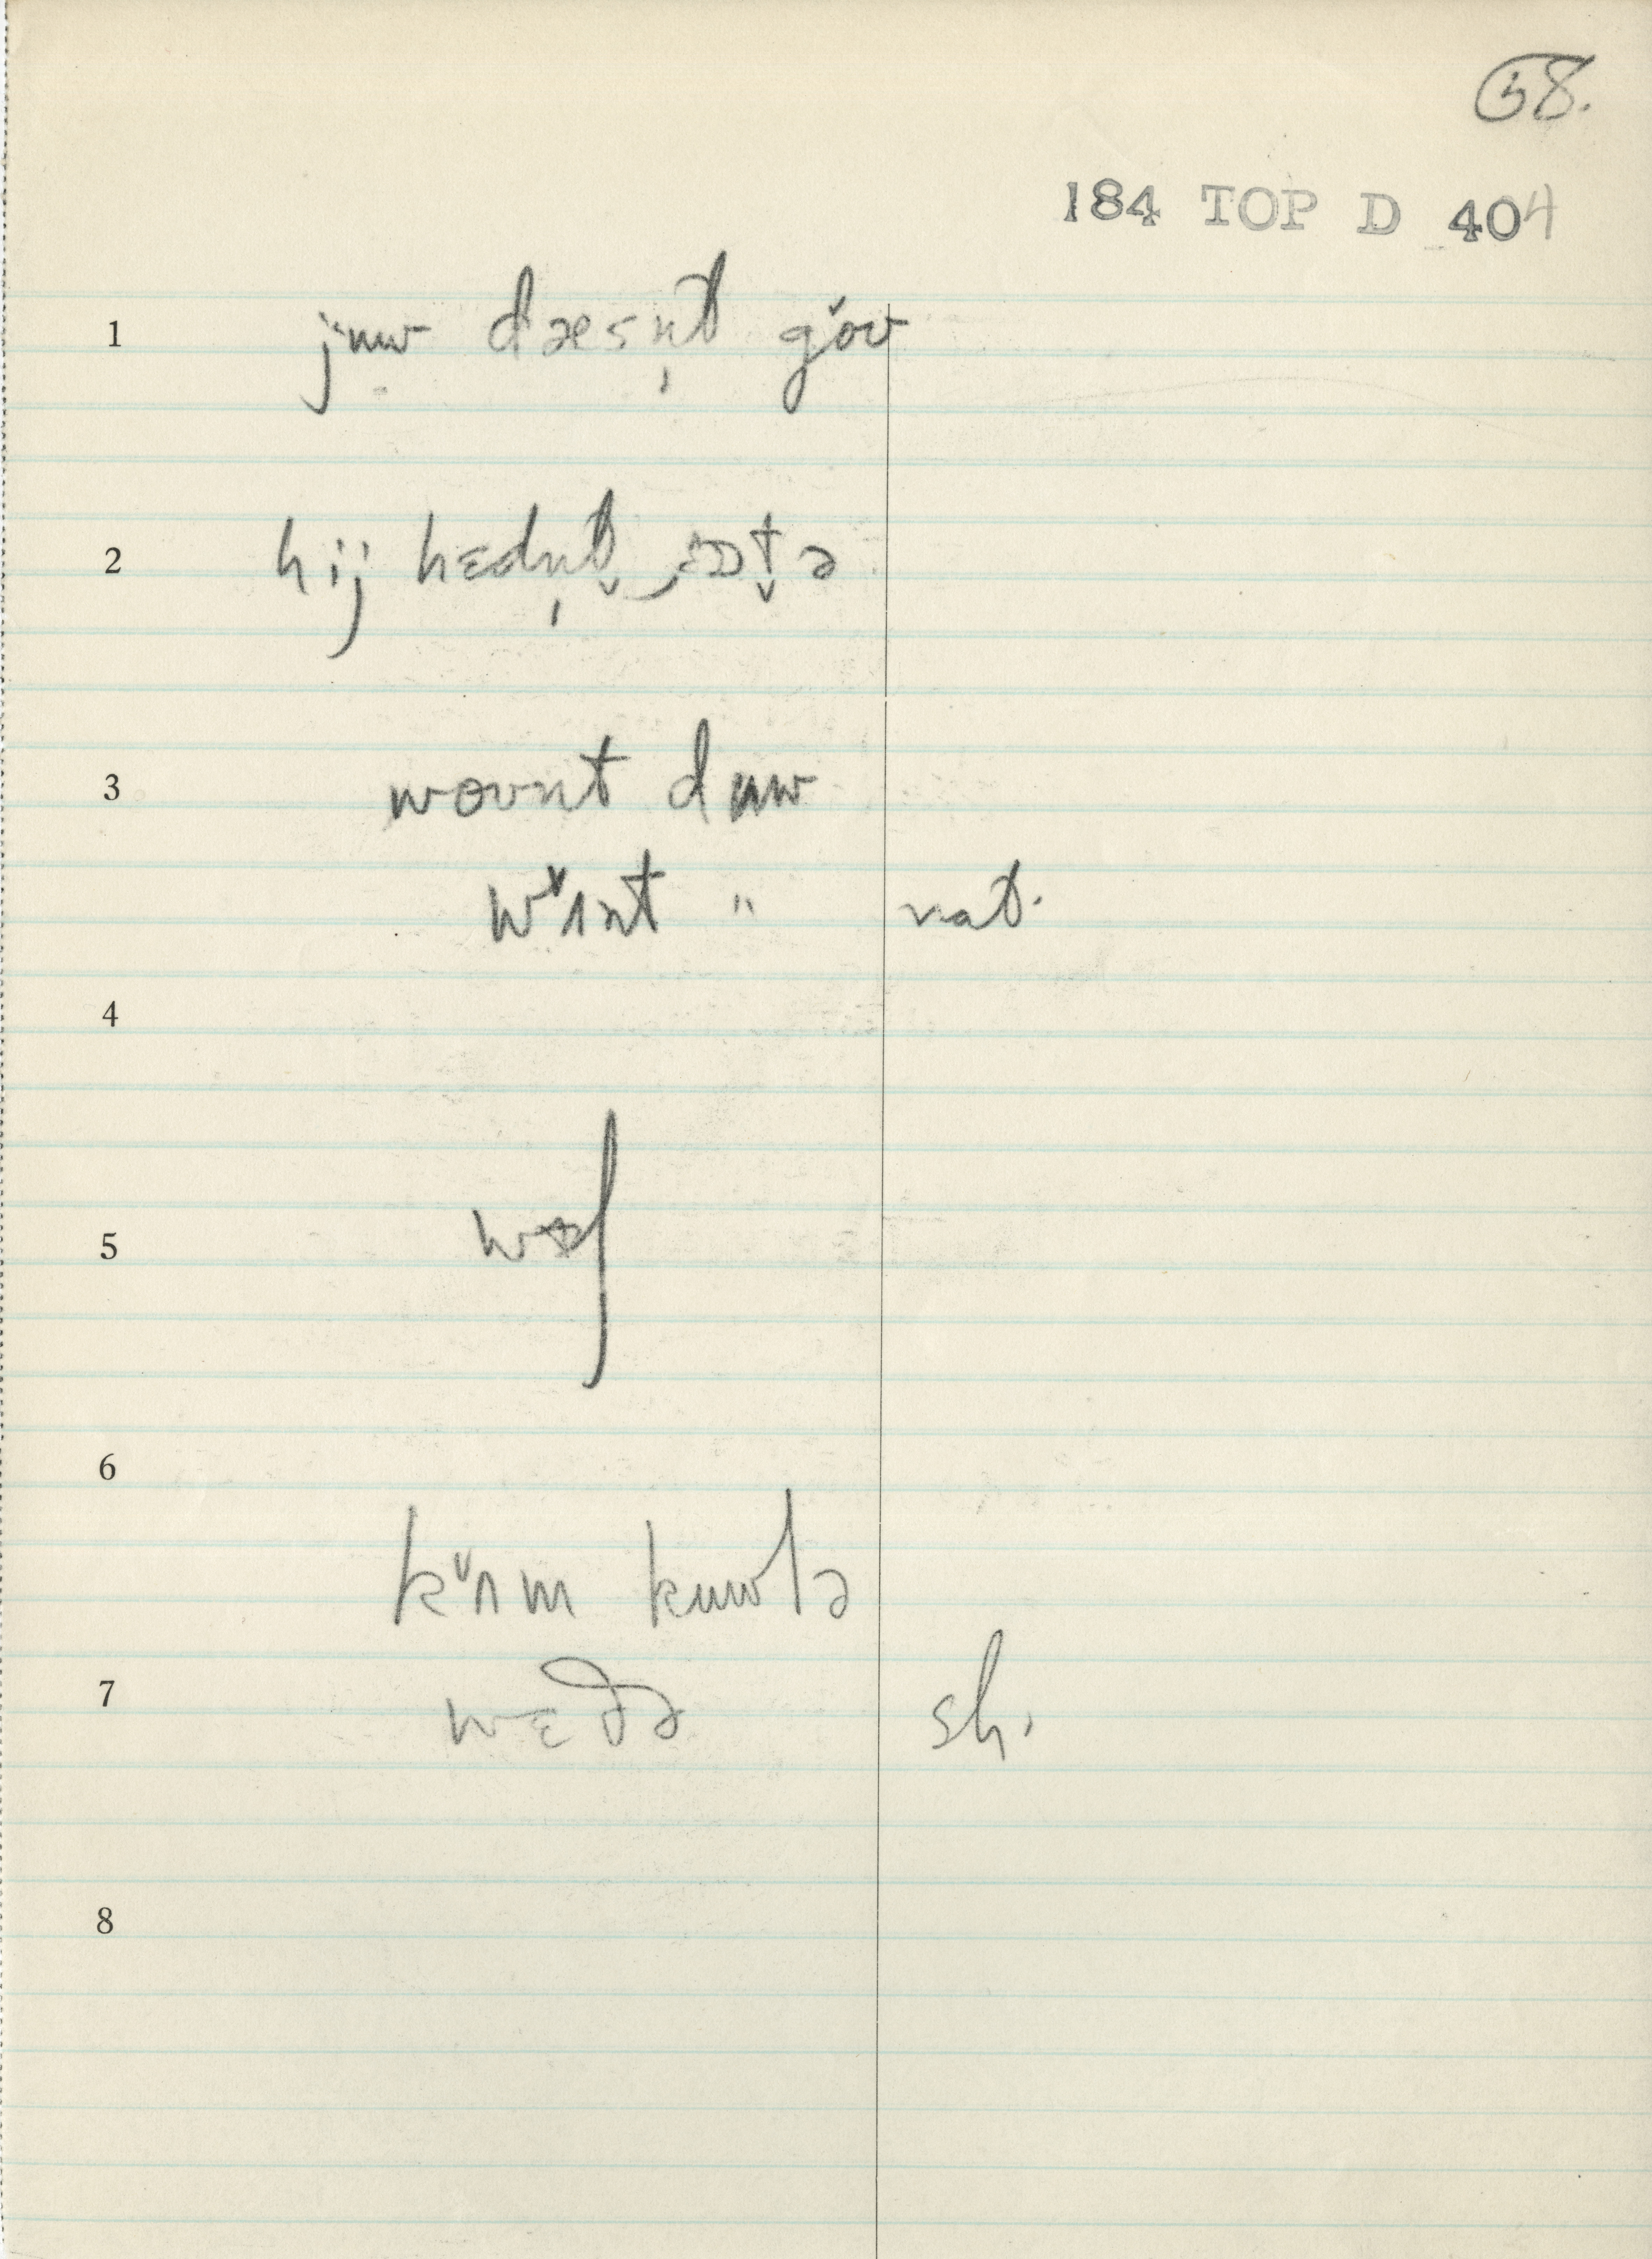 58.
184 TOP D 404
1 jʉw dæsn̩t gov
2 hij hɛdn̩t̬ ɒt̬ə
3 wovnt dʉw
wˠɪnt " nat.
4
5 wɒʃ
6
kˠʌm kʉwlə
7 wɛðə sh.
8